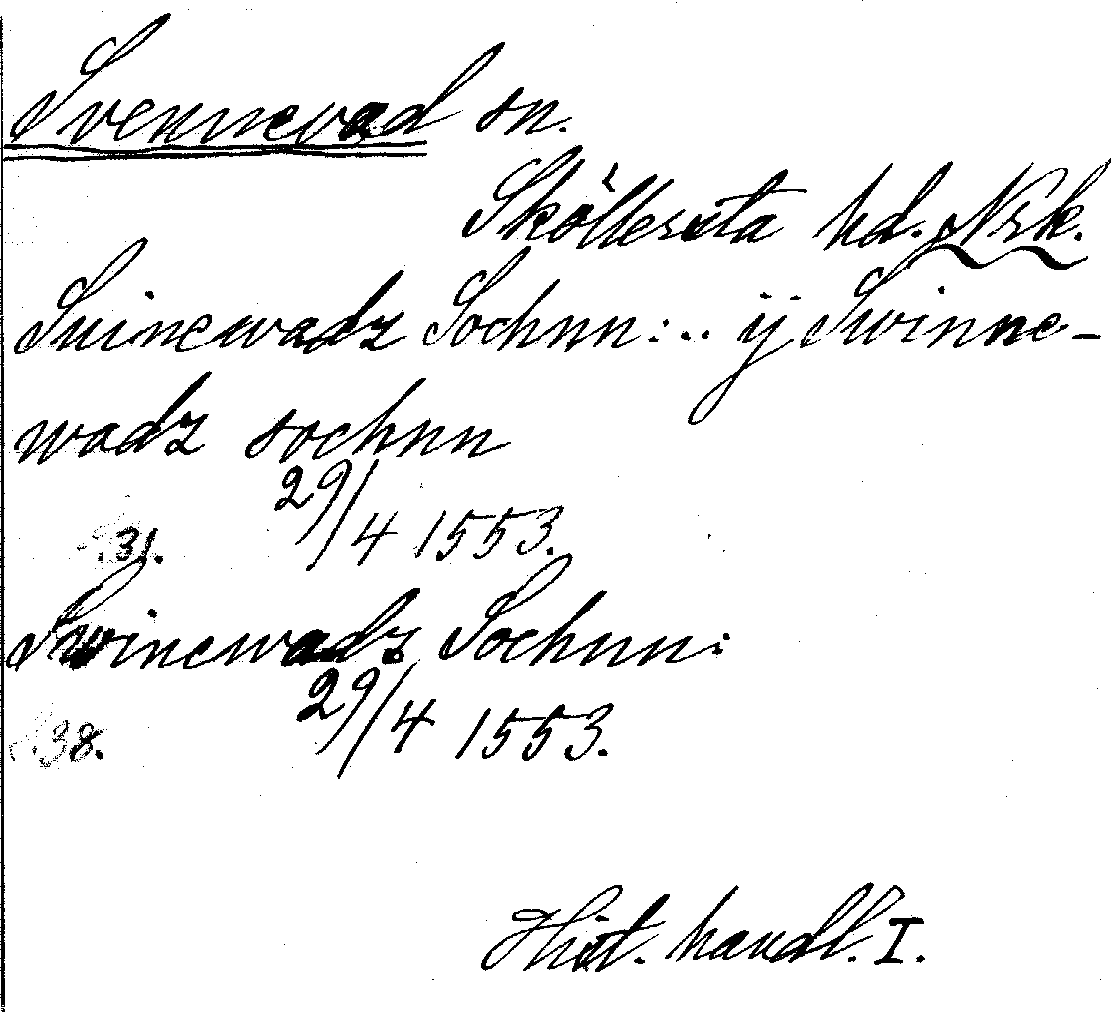 Svennevad sn.
Sköllersta hd. Nrk.
Suinewadz Sochnn: .. ÿ Swinne-
wadz sochnn
29/4 1553.
31.
Swinewadz Sochnn:
29/4 1553.
38.
Hist. handl. I.